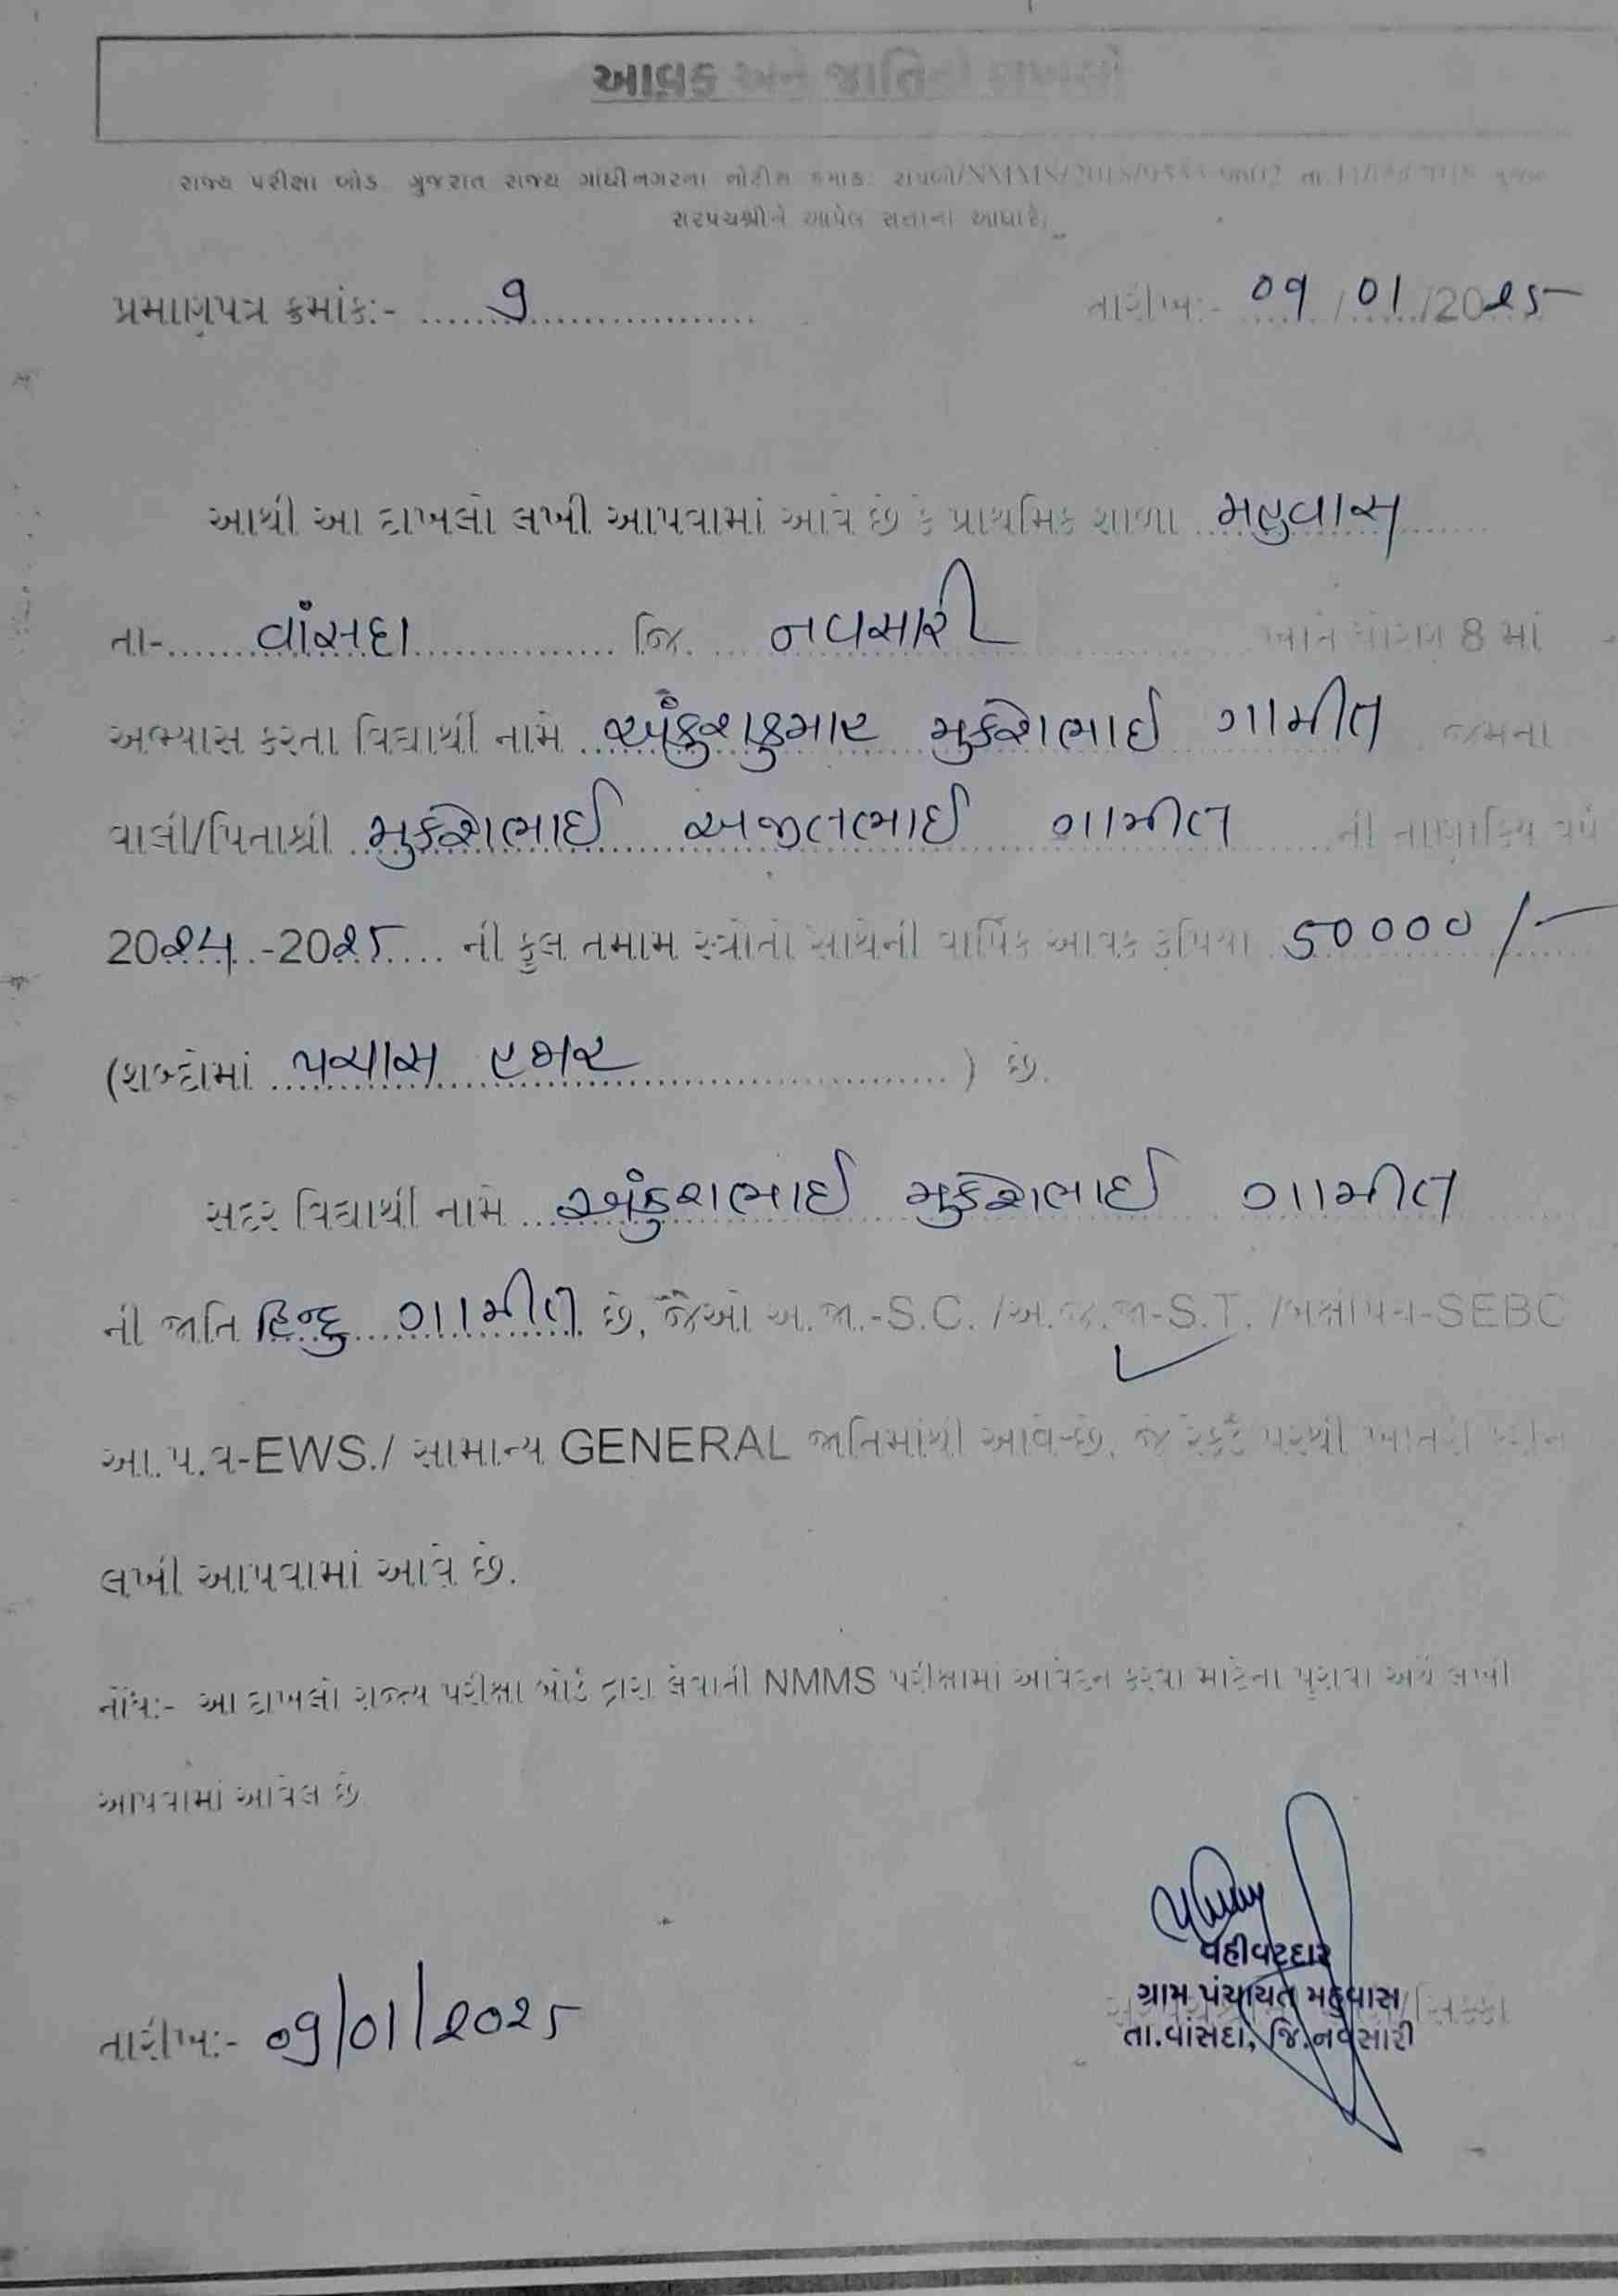 આવક અને જાતિનો દાખલો
રાજ્ય પરીક્ષા બોર્ડ ગુજરાત રાજ્ય ગાંધીનગરના નોટીસ ક્રમાંક: તા.
સરપંચશ્રીને આપેલ સત્તાના આધારે,
પ્રમાણપત્ર ક્રમાંક:- ....૭....
તારીખ:- 09/01/2025
આથી આ દાખલો લખી આપવામાં આવે છે કે પ્રાથમિક શાળા મહુવાસ
તા-......વાંસદા............ જિ. ....નવસારી........ ધોરણ 8 માં
અભ્યાસ કરતા વિદ્યાર્થી નામે ..અંકુશકુમાર મુકેશભાઈ ગામીત જેમના
વાલી/પિતાશ્રી ..મુકેશભાઈ અજીતભાઈ ગામીત ની નાણાકિય વર્ષ
2024-2025.... ની કુલ તમામ સ્ત્રોતો સાથેની વાર્ષિક આવક રૂપિયા 50000/-
(શબ્દોમાં ..પચાસ હજાર............) છે.
સદર વિદ્યાર્થી નામે ..અંકુશભાઈ મુકેશભાઈ ગામીત
ની જાતિ હિન્દુ ગામીત છે, જેઓ અ.જા.-S.C. /અ.જ.જા-S.T. /બક્ષીપંચ-SEBC
આ.પ.વ-EWS./ સામાન્ય GENERAL જાતિમાંથી આવે છે. જે રેકર્ડ પરથી ખાતરી કરીને
લખી આપવામાં આવે છે.
નોંધ:- આ દાખલો રાજ્ય પરીક્ષા બોર્ડ દ્વારા લેવાતી NMMS પરીક્ષામાં આવેદન કરવા માટેના પૂરાવા અર્થે લખી
આપવામાં આવેલ છે
વહીવટદાર
ગ્રામ પંચાયત મહુવાસ
તા.વાંસદા, જિ.નવસારી
/સિક્કા
તારીખ:- 09/01/2025